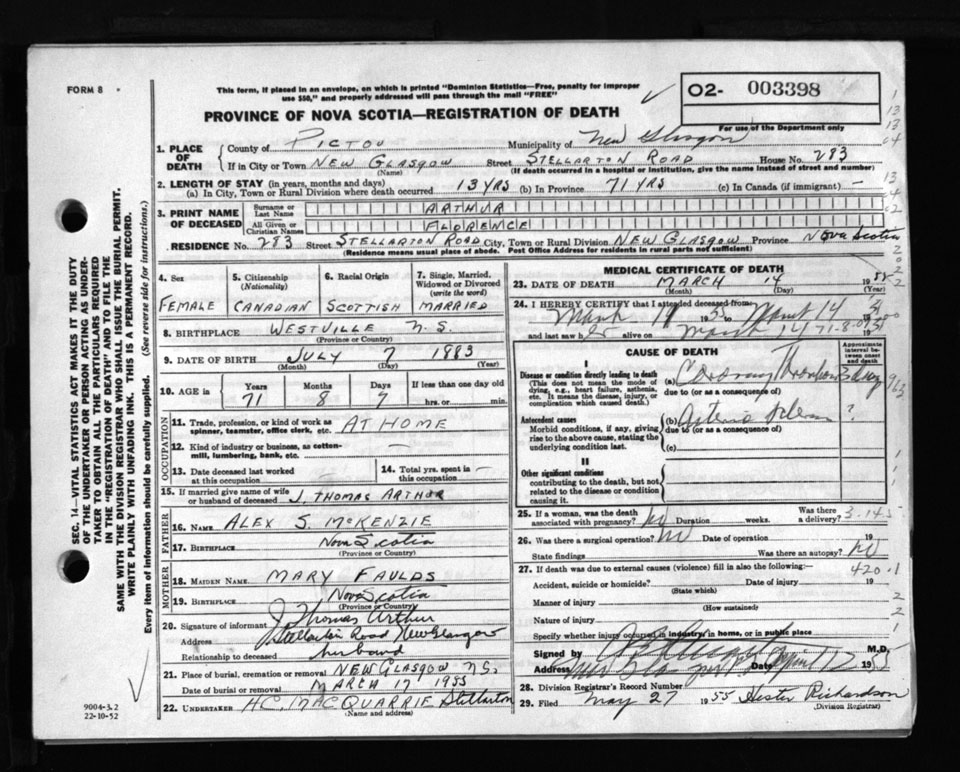 FORM 8
This form, if placed in an envelope, on which is printed "Dominion Statistics—Free, penalty for improper
use $50," and properly addressed will pass through the mail "FREE"
O2- 003398
For use of the Department only
PROVINCE OF NOVA SCOTIA—REGISTRATION OF DEATH
1. PLACE OF DEATH
County of PICTOU Municipality of New Glasgow
If in City or Town NEW GLASGOW Street STELLARTON ROAD House No. 283
(Name) (If death occurred in a hospital or institution, give the name instead of street and number)
2. LENGTH OF STAY (in years, months and days)
(a) In City, Town or Rural Division where death occurred 13 YRS (b) In Province 71 YRS (c) In Canada (if immigrant) —
3. PRINT NAME OF DECEASED
Surname or Last Name ARTHUR
All Given or Christian Names FLORENCE
RESIDENCE No. 283 Street STELLARTON ROAD City, Town or Rural Division NEW GLASGOW Province NOVA SCOTIA
(Residence means usual place of abode. Post Office Address for residents in rural parts not sufficient)
4. Sex
FEMALE
5. Citizenship
(Nationality)
CANADIAN
6. Racial Origin
SCOTTISH
7. Single, Married, Widowed or Divorced
(write the word)
MARRIED
8. BIRTHPLACE WESTVILLE N.S.
(Province or Country)
9. DATE OF BIRTH JULY 7 1883
(Month) (Day) (Year)
10. AGE in
Years Months Days If less than one day old
71 8 7 hrs. or min.
OCCUPATION
11. Trade, profession, or kind of work as
spinner, teamster, office clerk, etc. AT HOME
12. Kind of industry or business, as cotton-
mill, lumbering, bank, etc. —
13. Date deceased last worked
at this occupation
14. Total yrs. spent in
this occupation —
15. If married give name of wife
or husband of deceased J. THOMAS ARTHUR
FATHER
16. NAME ALEX S. MCKENZIE
17. BIRTHPLACE Nova Scotia
(Province or Country)
MOTHER
18. MAIDEN NAME MARY FAULDS
19. BIRTHPLACE Nova Scotia
(Province or Country)
20. Signature of informant J Thomas Arthur
Address Stellarton Road New Glasgow
Relationship to deceased husband
21. Place of burial, cremation or removal NEW GLASGOW N.S.
Date of burial or removal MARCH 17 1955
22. UNDERTAKER H.C. MACQUARRIE Stellarton
(Name and address)
MEDICAL CERTIFICATE OF DEATH
23. DATE OF DEATH MARCH 14 1955
(Month) (Day) (Year)
24. I HEREBY CERTIFY that I attended deceased from:
March 14 1955 to March 14
and last saw her alive on March 14
CAUSE OF DEATH
Approximate interval between onset and death
I
Disease or condition directly leading to death
(This does not mean the mode of
dying, e.g., heart failure, asthenia,
etc. It means the disease, injury, or
complication which caused death.)
(a) Coronary Thrombosis
due to (or as a consequence of)
Antecedent causes
Morbid conditions, if any, giving
rise to the above cause, stating the
underlying condition last.
(b) ?
due to (or as a consequence of)
(c)
II
Other significant conditions
contributing to the death, but not
related to the disease or condition
causing it.
25. If a woman, was the death
associated with pregnancy? No Duration weeks. Was there a delivery?
3.145
26. Was there a surgical operation? No Date of operation 19
State findings Was there an autopsy? No
27. If death was due to external causes (violence) fill in also the following:
420.1
Accident, suicide or homicide? Date of injury 19
(State which)
Manner of injury
(How sustained)
Nature of injury
Specify whether injury occurred in industry, in home, or in public place
Signed by M.D.
Address Date 1955
28. Division Registrar's Record Number
29. Filed May 27 1955 Hester Richardson
(Division Registrar)
9004-3.2
22-10-52
SEC. 14—VITAL STATISTICS ACT MAKES IT THE DUTY
OF THE UNDERTAKER OR PERSON ACTING AS UNDER-
TAKER TO OBTAIN ALL THE PARTICULARS REQUIRED
IN THE "REGISTRATION OF DEATH" AND TO FILE THE
SAME WITH THE DIVISION REGISTRAR WHO SHALL ISSUE THE BURIAL PERMIT.
WRITE PLAINLY WITH UNFADING INK. THIS IS A PERMANENT RECORD.
Every item of information should be carefully supplied. (See reverse side for instructions.)